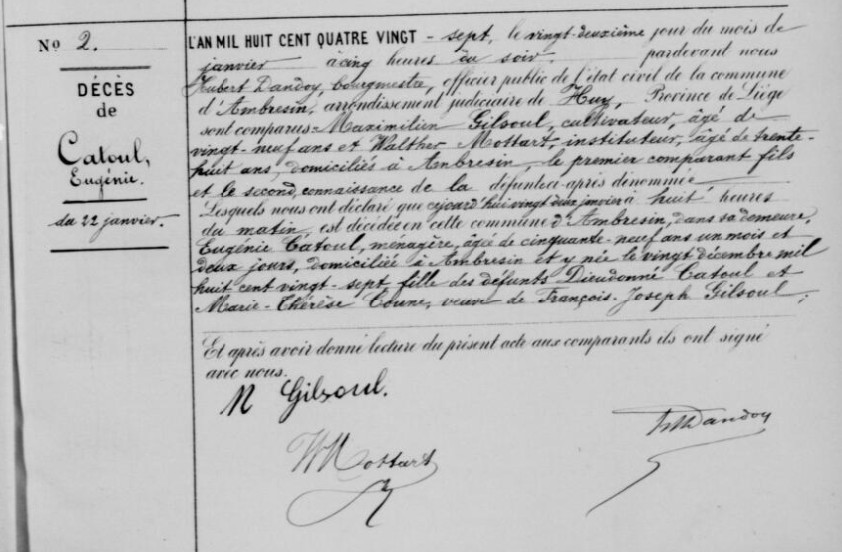 No 2.
DÉCÈS
de
Catoul,
Eugénie.
du 22 janvier.
L'AN MIL HUIT CENT QUATRE VINGT - sept, le vingt-deuxième jour du mois de
janvier à cinq heures du soir. pardevant nous
Hubert Dandoy, bourgmestre, officier public de l'état civil de la commune
d'Ambresin, arrondissement judiciaire de Huy, Province de Liége
sont comparus = Maximilien Gilsoul, cultivateur, âgé de
vingt-neuf ans et Walther Mottart, instituteur, âgé de trente-
huit ans, domiciliés à Ambresin, le premier comparant fils
et le second, connaissance de la défunte ci-après dénommée
Lesquels nous ont déclaré que cejourd'hui vingt deux janvier à huit heures
du matin, est décédée en cette commune d'Ambresin, dans sa demeure,
Eugénie Catoul, ménagère, âgée de cinquante-neuf ans un mois et
deux jours, domiciliée à Ambresin et y née le vingt décembre mil
huit cent vingt-sept, fille des défunts Dieudonné Catoul et
Marie-Thérèse Coune, veuve de François-Joseph Gilsoul,
Et après avoir donné lecture du présent acte aux comparants ils ont signé
avec nous.
M Gilsoul.
HDandoy
W Mottart